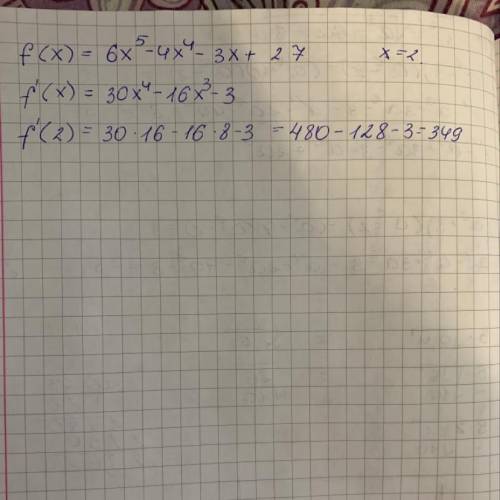 f(x) = 6x⁵-4x⁴-3x+ 27 x=2.
f'(x) = 30x⁴-16x³-3
f'(2) = 30·16-16·8-3 =480-128-3=349